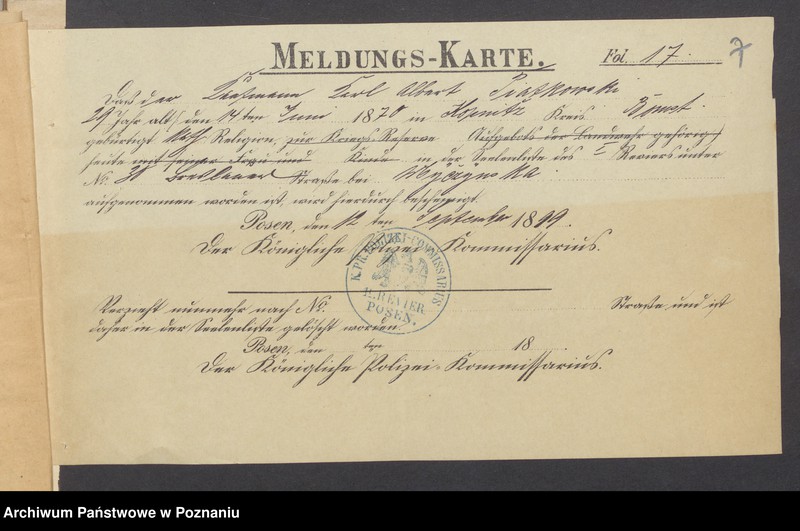 MELDUNGS-KARTE.
Fol. 17. 7
Daß der Kaufmann Carl Albert Piatkowski
29 Jahr alt, den 14 ten Juni 1870 in Kopnitz Kreis Bomst
gebürtigt kath. Religion, zur Kriegs-Reserve Aufgebots der Landwehr gehörig,
heute mit seiner Frau und Kinde in der Seelenliste des I Reviers unter
No. 30 Breslauer Straße bei
aufgenommen worden ist, wird hierdurch bescheinigt.
Posen, den 12 ten September 1899.
Der Königliche Polizei-Kommissarius.
K. PR. POLIZEI-COMMISSARIUS
II. REVIER
POSEN.
Verzieht nunmehr nach No. Straße und ist
daher in der Seelenliste gelöscht worden.
Posen, den ten 18
Der Königliche Polizei-Kommissarius.
Archiwum Państwowe w Poznaniu